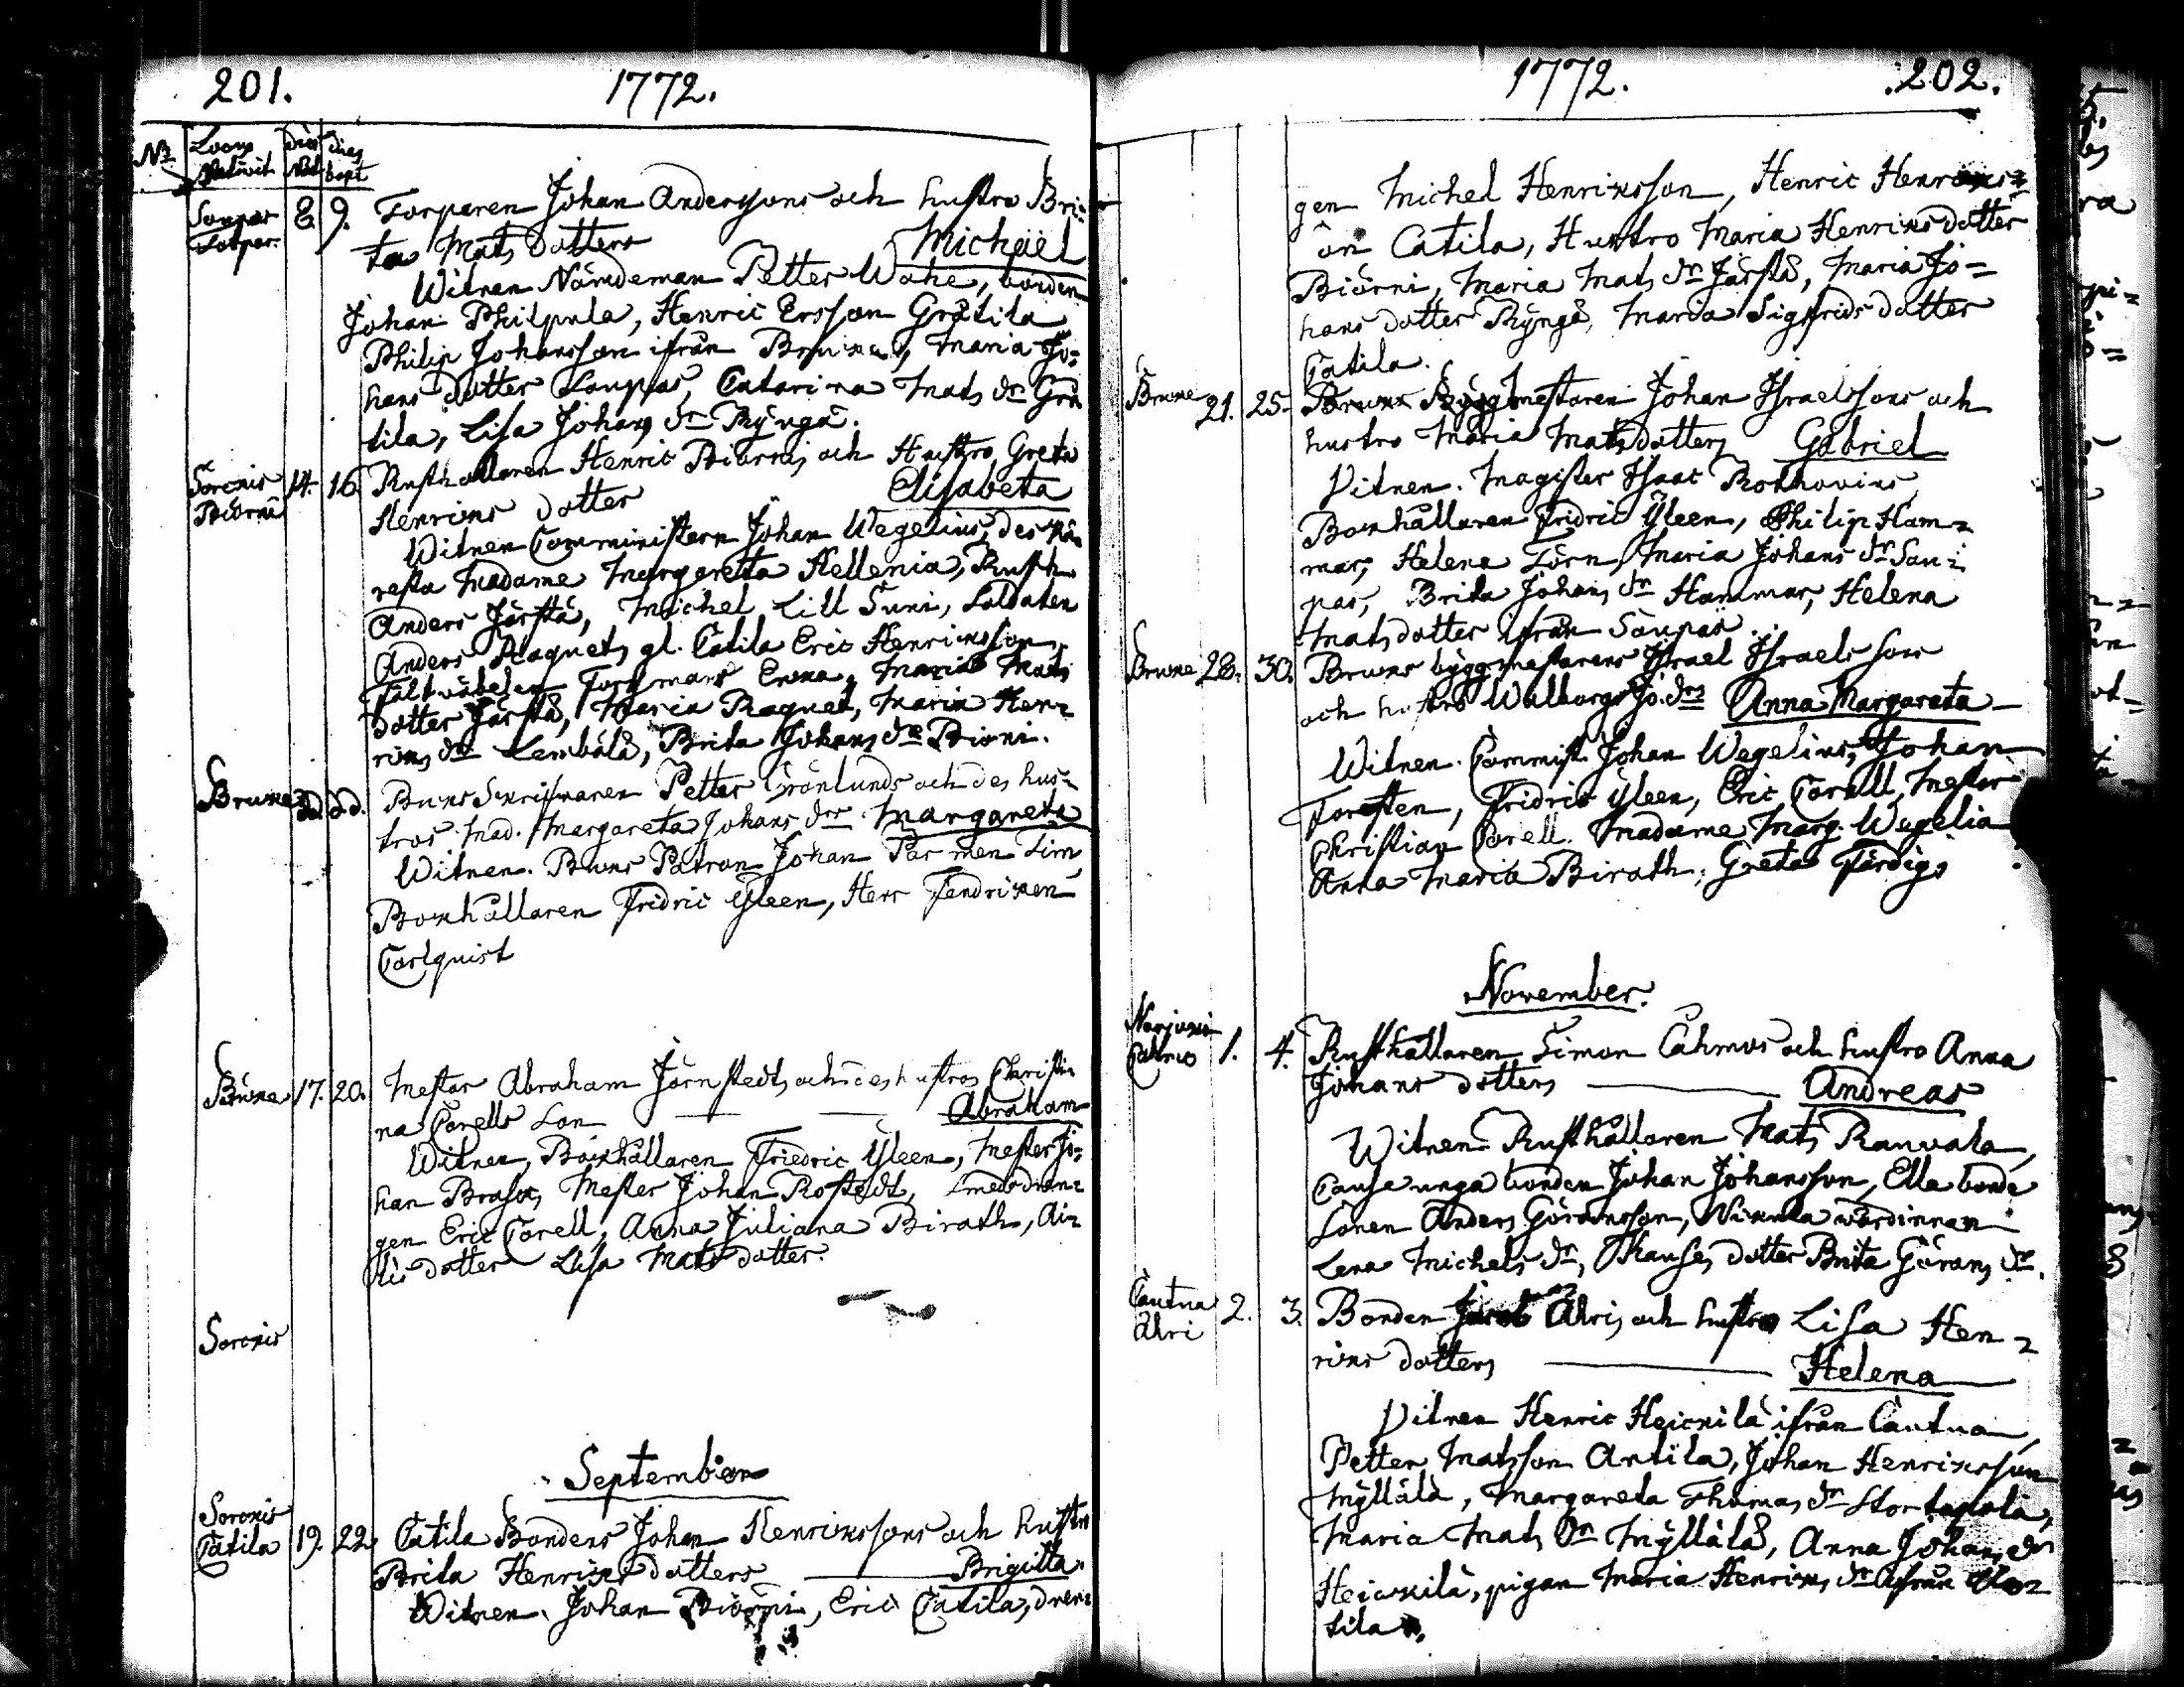 201. 1772.
No Locus Nativit dies Nat dies bapt
Saupas Torpar. 8. 9. Torparen Johan Anderssons och hustro Bri=
ta Mats dotters Michaël
Witnen Nämdeman Petter Wähe, bonden
Johan Philpula, Henric Ersson Gråtila
Philip Johansson ifrån Bruket, Maria Jo=
hans dotter Saupas, Catarina Mats dr Grå
tila, Lisa Johans dr Rÿngä.
Sorenis Biörni 14. 16. Rusthollaren Henric Biörnis och Hustro Greta
Henrics dotter Elisabeta
Witnen Comministern Johan Wegelius, des kä
resta Madame Margaretta Hellenia, Rusth.
Anders Järstå, Michel Lill Suni, Soldaten
Anders Raquet, gl. Catila Eric Henricsson,
Fältväbelen Forsmans Enka, Maria Mats
dotter Järstå, Maria Raquet, Maria Hen=
rics dr Lembälä, Brita Johans dr Biöni.
Brukes d.d. d.d. Bruks Skrifvaren Petter Grönlunds och des hus=
tros Mad. Margareta Johans drs Margareta
Witnen. Bruks Patron Johan Par men Sim,
Bokhållaren Fridric Ÿleen, Herr Fendriken
Carlquist
Bruket 17. 20. Mester Abraham Järnstedts och des hustros Christi
na Corells Son Abraham
Witnen, Bokhållaren Friedric Ÿleen, Mester Jo=
han Brask, Mester Johan Rostedt, Smedsdren=
gen Eric Corell, Anna Juliana Birath, Ai=
lis dotter Lisa Mats dotter.
Sorenis
September
Sorenis Catila 19. 22. Catila Bonders Johan Henricssons och hustro
Brita Henrics dotters Brigitta
Witnen. Johan Biörni, Eric Catila, dren=
1772. 202.
gen Michel Henricsson, Henric Henrics=
on Catila, Hustro Maria Henrics dotter
Biörni, Maria Mats dr Järstå, Maria Jo=
hans dotter Rÿngä, Maria Sigfrids dotter
Catila.
Bruket 21. 25. Bruks Bÿggmestaren Johan Israelssons och
hustro Maria Matsdotters Gabriel
Vitnen. Magister Isaac Rothovius,
Bokhållaren Fridric Ÿleen, Philip Ham=
mar, Helena Törn, Maria Johans dr Sau=
pas, Brita Johans dr Hammar, Helena
Mats dotter ifrån Saupas.
Bruket 28. 30. Bruks bÿggmestarens Israel Israelsson
och hustro Walborg Jo. drs Anna Margareta
Witnen. Commist. Johan Wegelius, Johan
Forsten, Fridric Ÿleen, Eric Corell, Mester
Christian Corell. Madame Marg. Wegelia
Anna Maria Birath, Greta Färdig.
November.
Narjoki Cahmo 1. 4. Rusthållaren Simon Cahmos och hustro Anna
Johans dotters Andreas
Witnen Rusthållaren Mats Ranvala,
Cause unga bonden Johan Johansson, Ella bonde
Sonen Anders Göransson, Nikkula wärdinnan
Lena Michels dr, Kauses dotter Brita Görans dr.
Cautua Ahri 2. 3. Bonden Jacob Ahris och hustro Lisa Hen=
rics dotters Helena
Vitnen Henric Heickilä ifrån Cautua,
Petter Matsson Antila, Johan Henricsson
Mÿllälä, Margareta Thomas dr Stortapala,
Maria Mats dr Mÿllälä, Anna Johans dr
Heickilä, pigan Maria Henrics dr ifrån
tila.